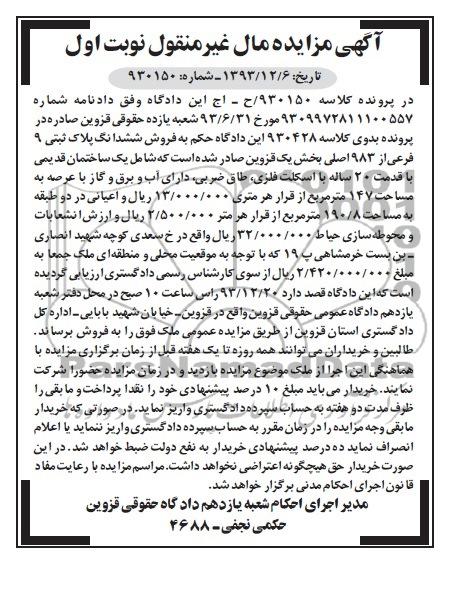 آگهی مزایده مال غیرمنقول نوبت اول
تاریخ: ۱۳۹۳/۱۲/۶ ـ شماره: ۹۳۰۱۵۰
در پرونده کلاسه ۹۳۰۱۵۰/ح ـ اج این دادگاه وفق دادنامه شماره
۹۳۰۹۹۷۲۸۱۱۱۰۰۵۵۷ مورخ ۹۳/۶/۳۱ شعبه یازده حقوقی قزوین صادره در
پرونده بدوی کلاسه ۹۳۰۴۲۸ این دادگاه حکم به فروش ششدانگ پلاک ثبتی ۹
فرعی از ۹۸۳ اصلی بخش یک قزوین صادر شده است که شامل یک ساختمان قدیمی
با قدمت ۲۰ ساله با اسکلت فلزی، طاق ضربی، دارای آب و برق و گاز با عرصه به
مساحت ۱۴۷ مترمربع از قرار هر متری ۱۳/۰۰۰/۰۰۰ ریال و اعیانی در دو طبقه
به مساحت ۱۹۰/۸ مترمربع از قرار هر متر ۲/۵۰۰/۰۰۰ ریال و ارزش انشعابات
و محوطه سازی حیاط ۳۲/۰۰۰/۰۰۰ ریال واقع در خ سعدی کوچه شهید انصاری
ـ بن بست خرمشاهی پ ۱۹ که با توجه به موقعیت محلی و منطقه‌ای ملک جمعا به
مبلغ ۲/۴۲۰/۰۰۰/۰۰۰ ریال از سوی کارشناس رسمی دادگستری ارزیابی گردیده
است که این دادگاه قصد دارد ۹۳/۱۲/۲۰ راس ساعت ۱۰ صبح در محل دفتر شعبه
یازدهم دادگاه عمومی حقوقی قزوین واقع در قزوین ـ خیابان شهید بابایی ـ اداره کل
دادگستری استان قزوین از طریق مزایده عمومی ملک فوق را به فروش برساند.
طالبین و خریداران می توانند همه روزه تا یک هفته قبل از زمان برگزاری مزایده با
هماهنگی این اجرا از ملک موضوع مزایده بازدید و در زمان مزایده حضورا شرکت
نمایند. خریدار می باید مبلغ ۱۰ درصد پیشنهادی خود را نقدا پرداخت و مابقی را
ظرف مدت دو هفته به حساب سپرده دادگستری واریز نماید. در صورتی که خریدار
مابقی وجه مزایده را در زمان مقرر به حساب سپرده دادگستری واریز ننماید یا اعلام
انصراف نماید ده درصد پیشنهادی خریدار به نفع دولت ضبط خواهد شد. در این
صورت خریدار حق هیچگونه اعتراضی نخواهد داشت. مراسم مزایده با رعایت مفاد
قانون اجرای احکام مدنی برگزار خواهد شد.
مدیر اجرای احکام شعبه یازدهم دادگاه حقوقی قزوین
حکمی نجفی ـ ۴۶۸۸